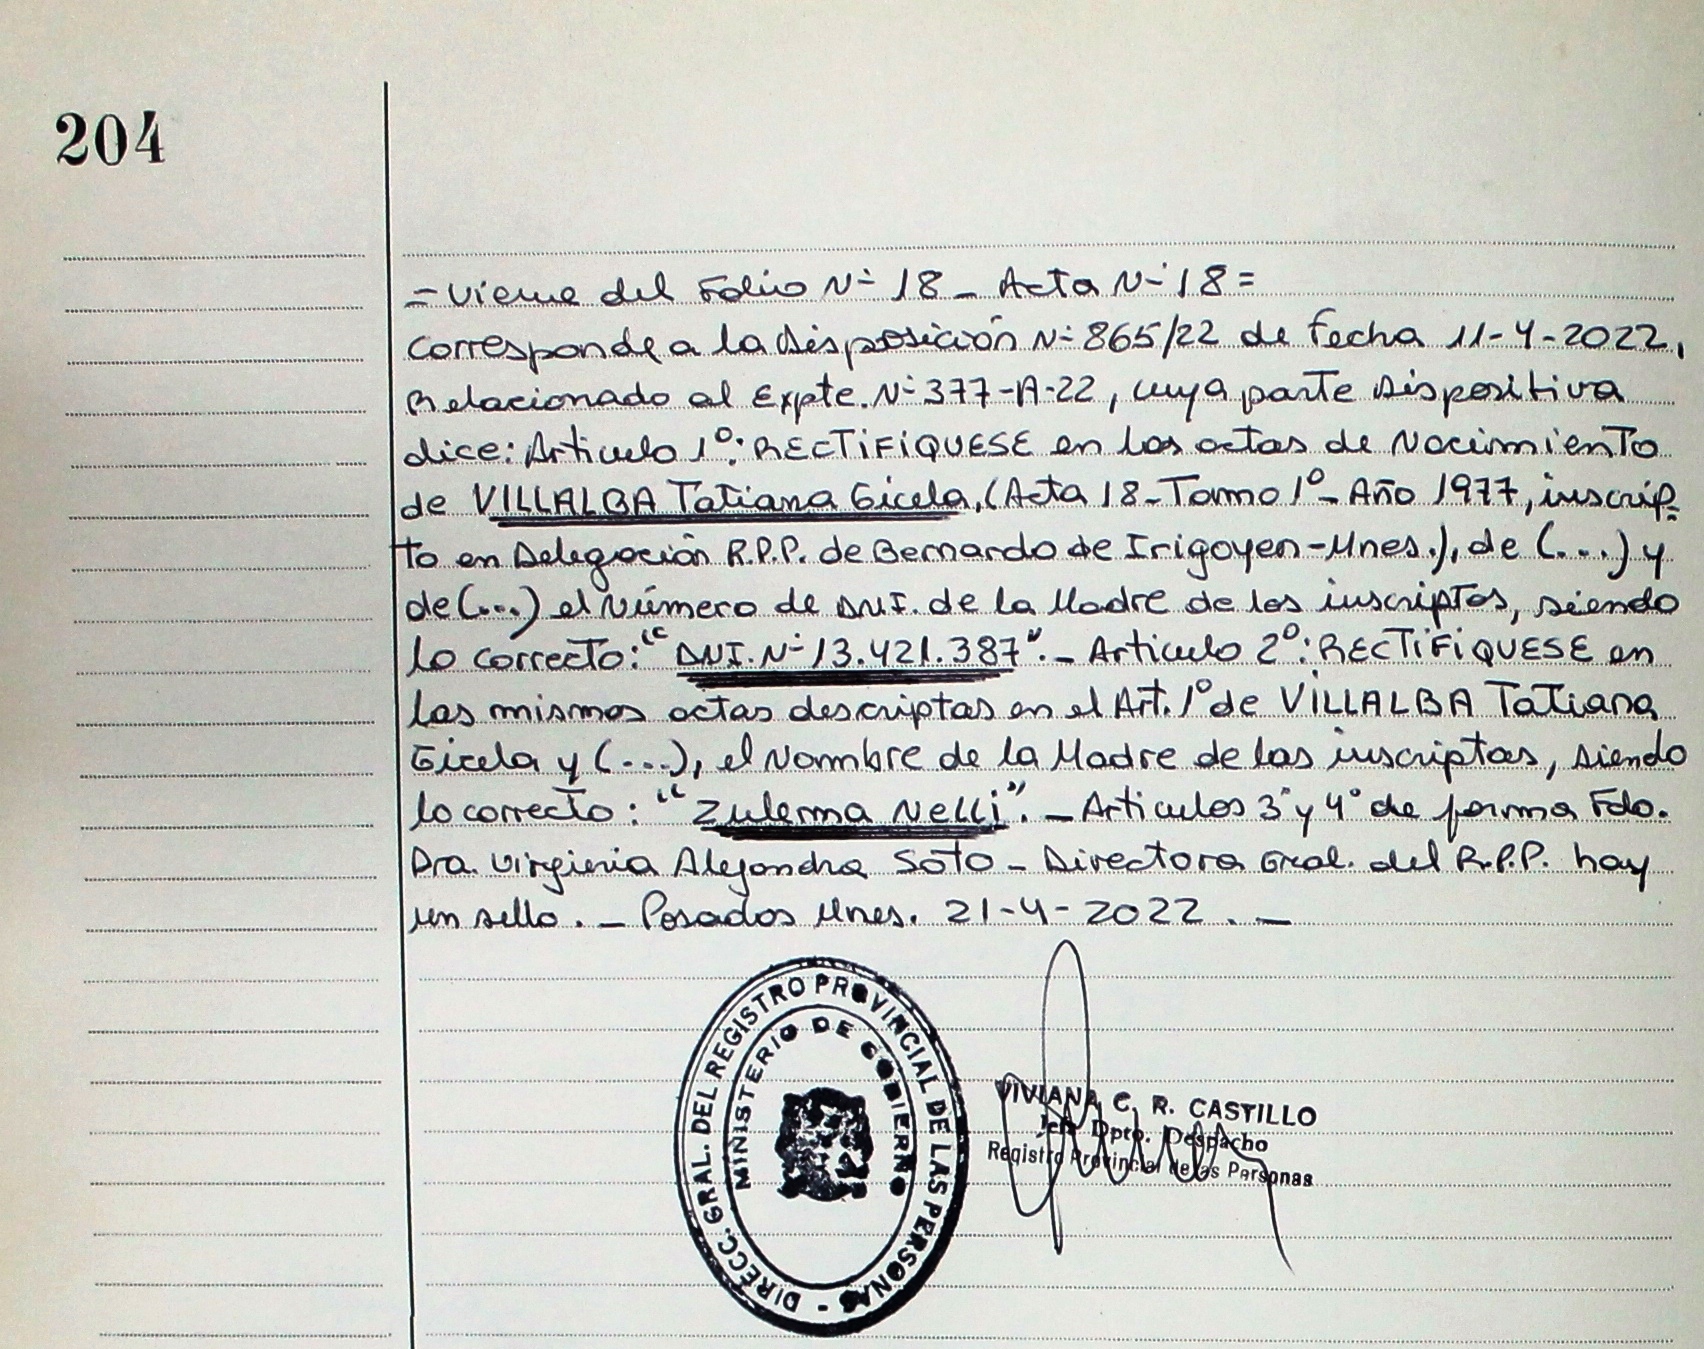 204
= Viene del Folio Nº 18 _ Acta Nº 18 =
corresponde a la Disposición Nº 865/22 de fecha 11-4-2022,
Relacionado al Expte. Nº 377-A-22, cuya parte dispositiva
dice: Articulo 1º: RECTIFIQUESE en las actas de Nacimiento
de VILLALBA Tatiana Gicela, (Acta 18 - Tomo 1º - Año 1977, inscrip=
to en Delegación R.P.P. de Bernardo de Irigoyen - Mnes.), de (...) y
de (...) el Número de DNI. de la Madre de los inscriptos, siendo
lo correcto: "DNI. Nº 13.421.387". _ Articulo 2º: RECTIFIQUESE en
las mismas actas descriptas en el Art. 1º de VILLALBA Tatiana
Gicela y (...), el Nombre de la Madre de las inscriptas, siendo
lo correcto: "Zulema Nelli". _ Articulos 3º y 4º de forma Fdo.
Dra. Virginia Alejandra Soto - Directora Gral. del R.P.P. hay
un sello. _ Posadas Mnes. 21-4-2022. _
DIRECC. GRAL. DEL REGISTRO PROVINCIAL DE LAS PERSONAS -
MINISTERIO DE GOBIERNO
VIVIANA C. R. CASTILLO
Jefa Dpto. Despacho
Registro Provincial de las Personas